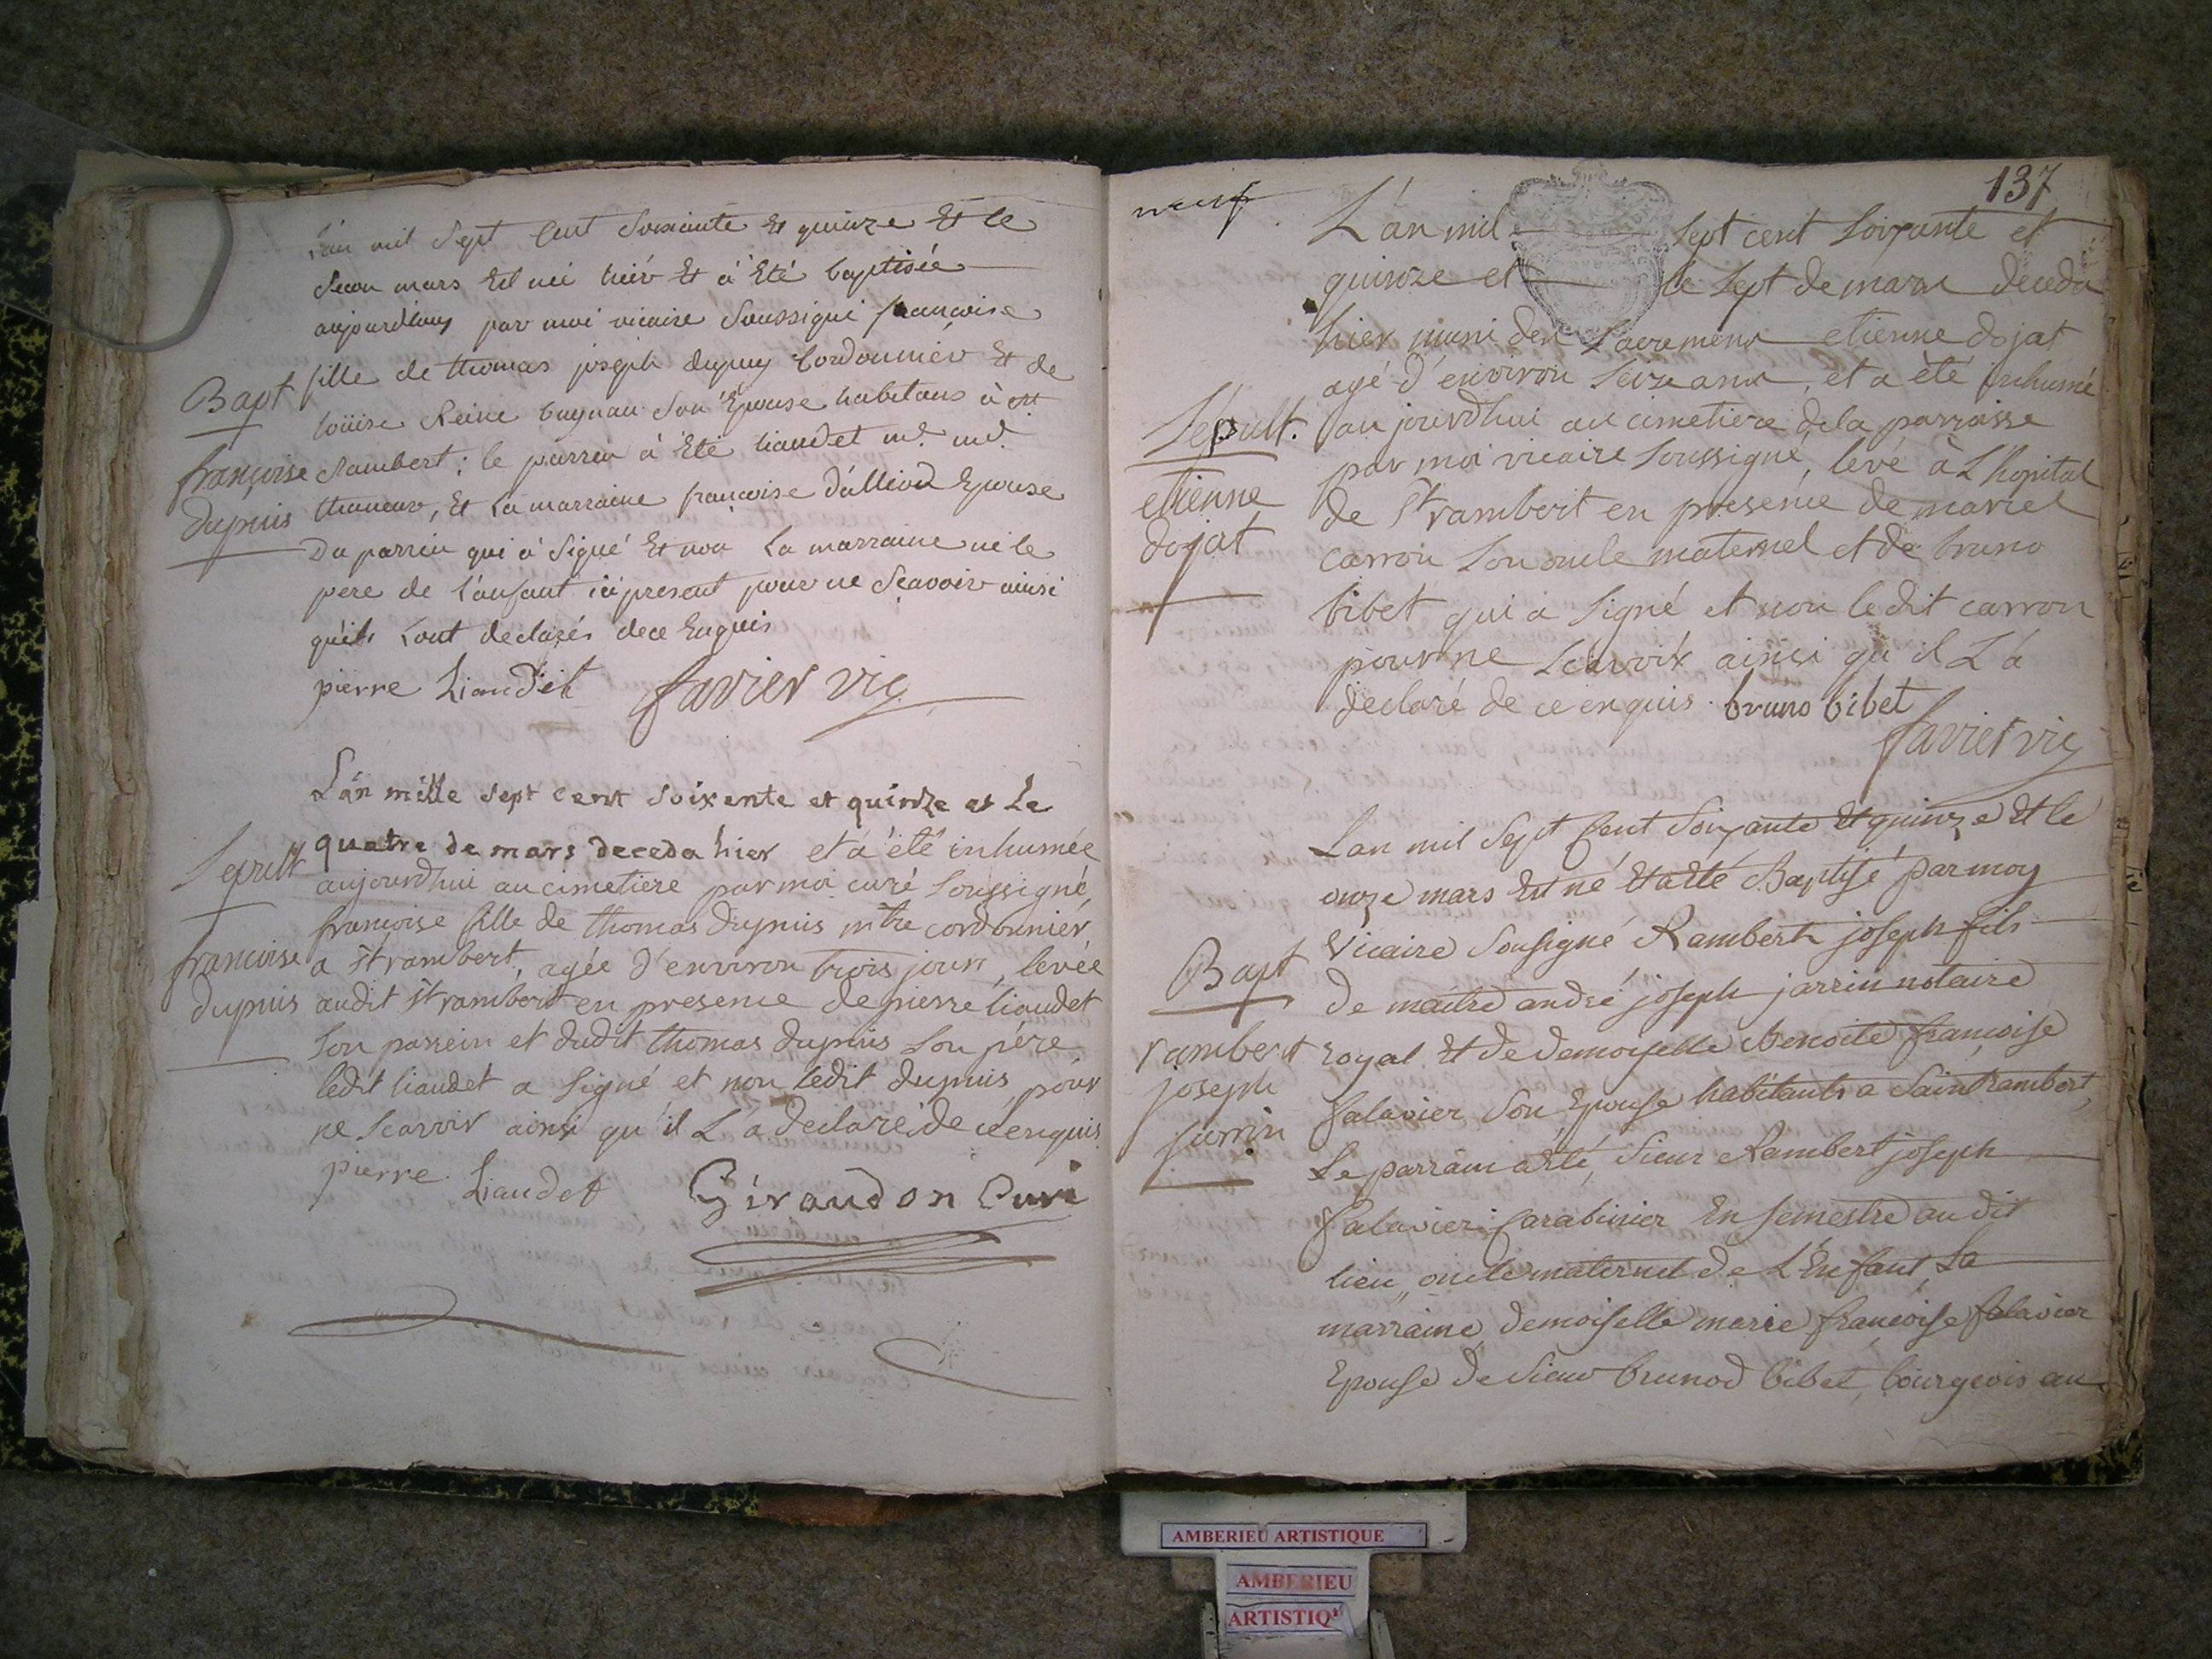 L'an mil Sept Cent Soixante Et quinze Et le
Secon mars Est née hiér Et à Eté baptisée
aujourdhuy par moi vicaire Soussigné françoise
fille de thomas joseph dupuy Cordonniér Et de
Bapt
loüise Reine Son Epouse habitans à St
françoise
Rambert; le parrin à Eté liaudet md.
dupuis
Et La marraine françoise Epouse
Du parrin qui à Signé Et non La marraine ni le
pere de l'anfant ici present pour ne Sçavoir ainsi
qu'ils L'ont declarés dece Enquis
pierre Liaudet favier vic
L'án mille sept cent soixente et quinze et Le
quatre de mars deceda hier et à été inhumée
Sepult
aujourdhui au cimetiere par moi curé Soussigné,
françoise fille de thomas dupuis mtre cordonnier
francoise
a St rambert, agée d'environ trois jours, levée
dupuis
audit St rambert en presence de pierre liaudet
Son parrein et dudit thomas dupuis Son père
ledit liaudet a Signé et non ledit dupuis pour
ne Scavoir ainsi qu'il L'a declaré de ce enquis
pierre Liaudet Géraudon Curé
137
neuf
L'án mil Sept cent Soixante et
quinze et le Sept de mars deceda
hier muni des Sacremens etienne dojat
agé d'environ Seize ans, et a été inhumé
Sépult.
aujourdhui au cimetiere dela parroisse
par moi vicaire Soussigné, levé à L'hopital
etienne
de St rambert en presence de marcel
dojat
carron Son oncle maternel et de bruno
bibet qui a Signé et non ledit carron
pour ne Scavoir ainsi qu'il L'a
declaré de ce enquis bruno bibet
favier vic
Lan mil Sept Cent Soixante Et quinze Et le
onze mars Est né Et a Eté Baptisé par moy
Vicaire Sousigné Rambert joseph fils
Bapt
de maitre andré joseph jarrin notaire
rambert
royal Et de demoiselle Benoite françoise
joseph
falavier Son Epouse habitants a Saint rambert,
jarrin
Le parrain a Eté, Sieur Rambert joseph
falavier carabinier En Semestre au dit
lieu, oncle maternel de L'Enfant, La
marraine demoiselle marie françoise falavier
Epouse de Sieur brunod bibet, bourgeois au
AMBERIEU ARTISTIQUE
AMBERIEU
ARTISTIQ